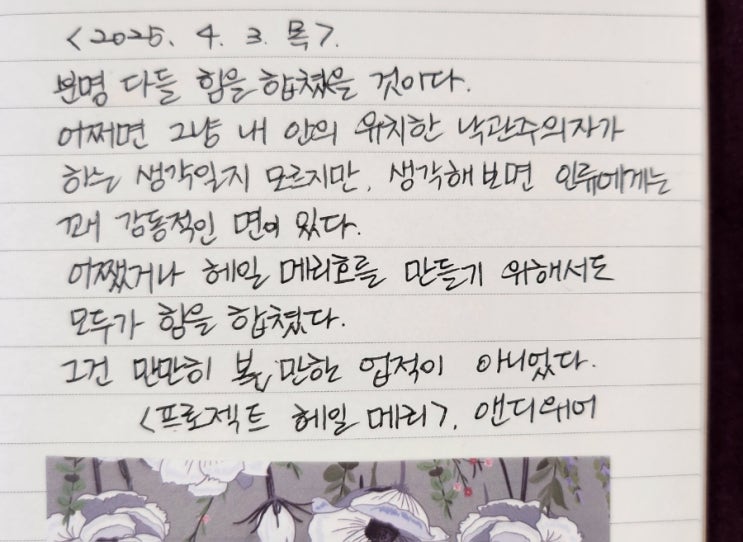 <2025. 4. 3. 목>.
분명 다들 힘을 합쳤을 것이다.
어쩌면 그냥 내 안의 유치한 낙관주의자가
하는 생각일지 모르지만, 생각해보면 인류에게는
꽤 감동적인 면이 있다.
어쨌거나 헤일 메리호를 만들기 위해서도
모두가 힘을 합쳤다.
그건 만만히 볼 만한 업적이 아니었다.
<프로젝트 헤일 메리>, 앤디위어